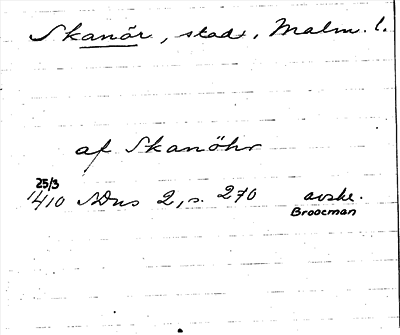 Skanör, stad, Malm. l.
af Skanöhr
25/3
1410 SDns 2, s. 270 avskr.
Broocman